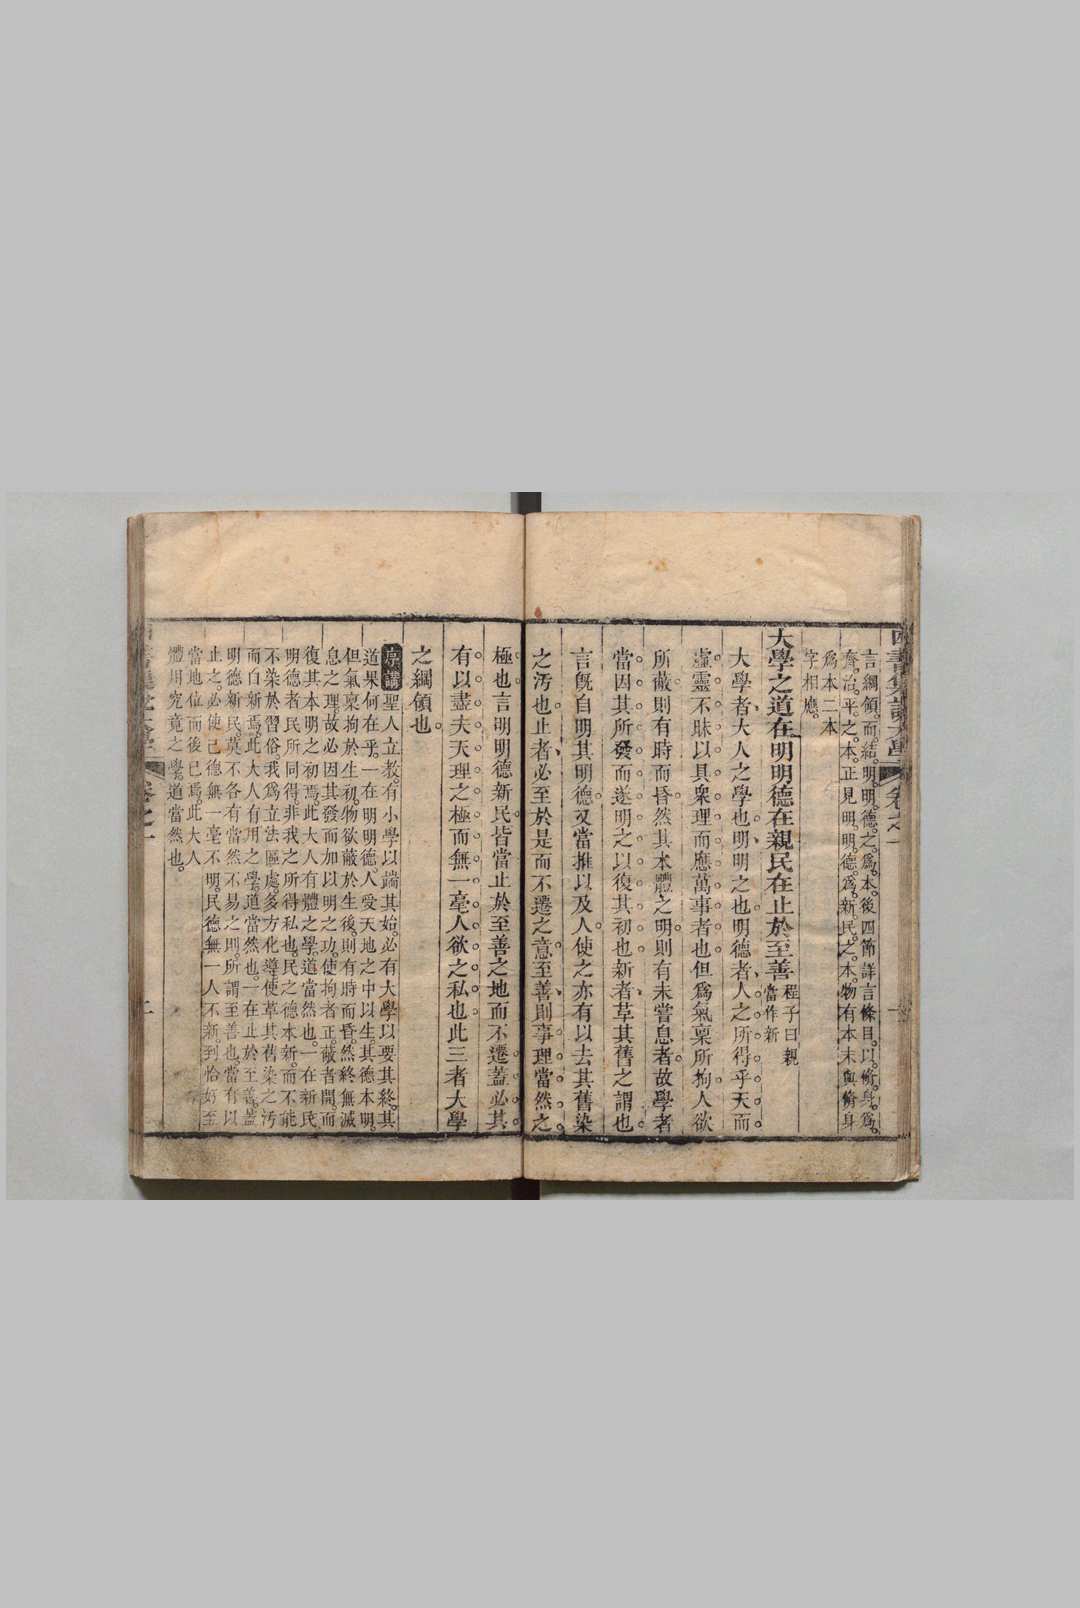 言綱領。而。結。明。明。德。之。爲。本。後四節詳言條目。以。脩。身。爲。
齊。治。平。之。本。正見明。明。德。爲。新。民。之。本。物有本末與脩身
爲本二本
字相應。
大學之道在明明德在親民在止於至善程子曰親
當作新
大學者大人之學也明明之也明德者人之所得乎天而
虛靈不昧以具衆理而應萬事者也但爲氣稟所拘人欲
所蔽則有時而昏然其本體之明則有未嘗息者故學者
當因其所發而遂明之以復其初也新者革其舊之謂也
言旣自明其明德又當推以及人使之亦有以去其舊染
之汚也止者必至於是而不遷之意至善則事理當然之
極也言明明德新民皆當止於至善之地而不遷蓋必其
有以盡夫天理之極而無一毫人欲之私也此三者大學
之綱領也。
講聖人立教。有小學以端其始。必有大學以要其終。其
道果何在乎。一在明明德。人受天地之中以生。其德本明。
但氣稟拘於生初。物欲蔽於生後。則有時而昏。然終無滅
息之理。故必因其發而加以明之功。使拘者正。蔽者開。而
復其本明之初焉。此大人有體之學。道當然也。一在新民。
明德者民所同得。非我之所得私也。民之德本新。而不能
不染於習俗。我爲立法區處。多方化導。使革其舊染之汚
而自新焉。此大人有用之學。道當然也。一在止於至善。蓋
明德新民。莫不各有當然不易之則。所謂至善也。當有以
止之。必使己德無一毫不明。民德無一人不新。到恰好至
當地位而後已焉。此大人
體用究竟之學。道當然也。